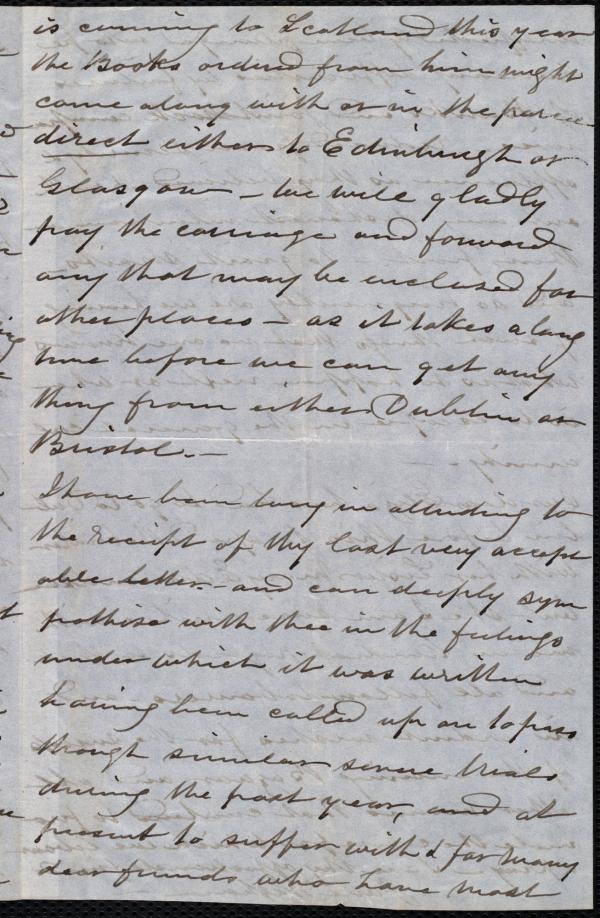 is coming to Scotland this year
the Books ordered from him might
come along with or in the parcel
direct either to Edinburgh or
Glasgow - we will gladly
pay the carriage and forward
any that may be inclosed for
other places - as it takes a long
time before we can get any
thing from either Dublin or
Bristol. -
I have been long in attending to
the receipt of thy last very accept
able letter - and can deeply sym
pathise with thee in the feelings
under which it was written
having been called upon to pass
through similar severe trials
during the past year, and at
present to suffer with & for many
dear friends who have most